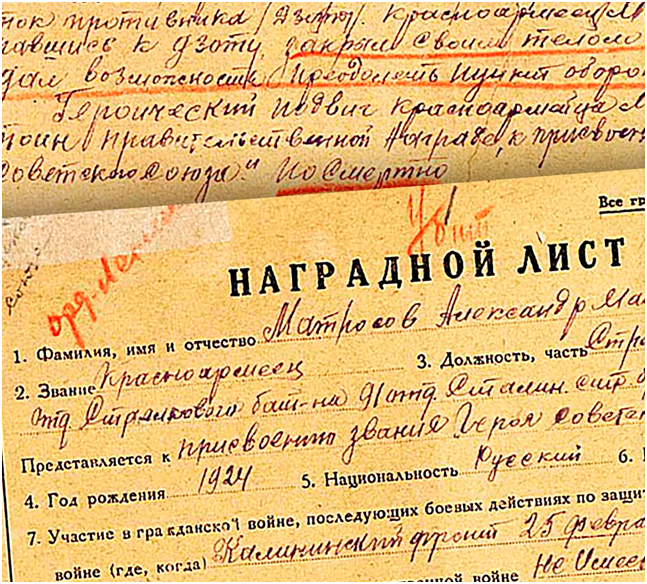 нок противника (Дзот). Красноармеец М
к дзоту, закрыл своим телом
дал возможность преодолеть пункт оборо
Героический подвиг красноармейца М
правительственной награде, к присвоен
Советского Союза" посмертно
Убит
Все гр
орд. Ленина
НАГРАДНОЙ ЛИСТ
1. Фамилия, имя и отчество Матросов Александр Мат
2. Звание Красноармеец 3. Должность, часть Стре
отд. Стрелкового бат-на 91 отд. Сталин. стр. б
Представляется к присвоению звания Героя Советс
4. Год рождения 1924 5. Национальность Русский 6.
7. Участие в гражданской войне, последующих боевых действиях по защит
войне (где, когда) Калининский фронт 25 Февра
венной войне Не имее